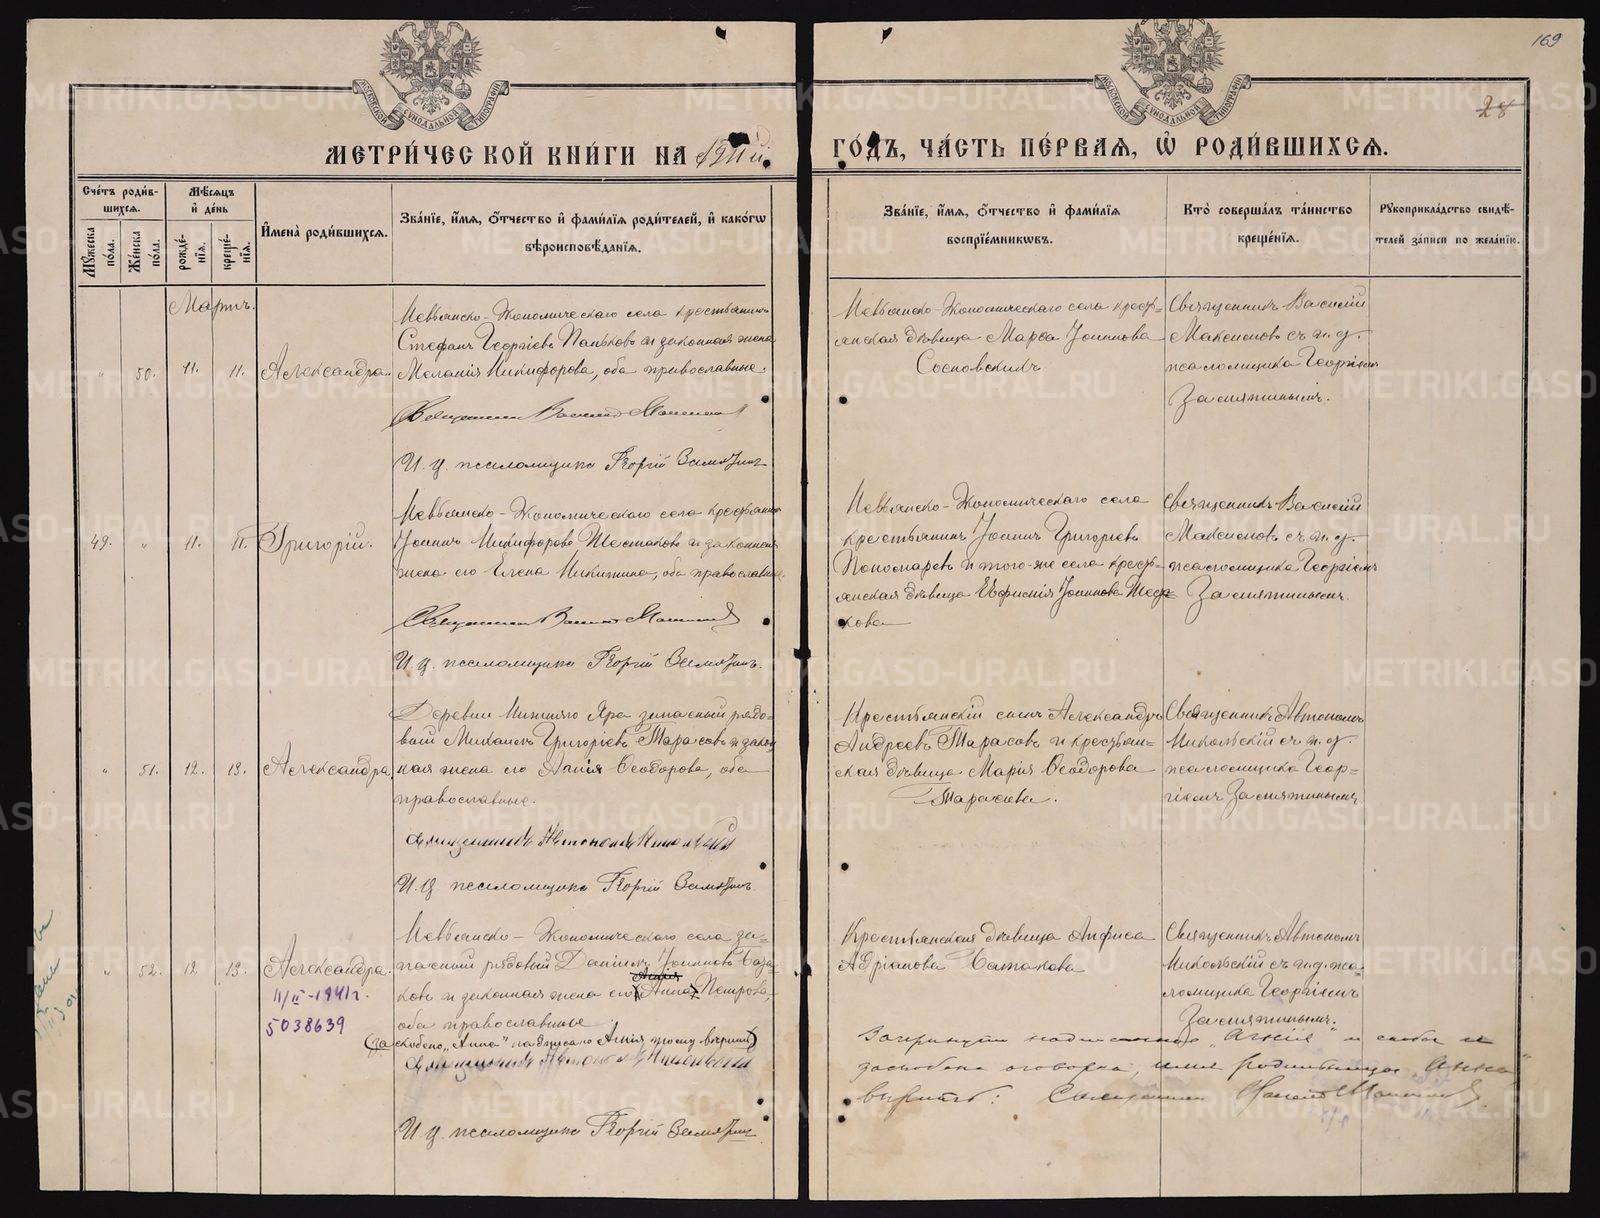 169
28
МЕТРИ́ЧЕСКОЙ КНИ́ГИ НА 1911й ГО́ДЪ, ЧА́СТЬ ПЕ́РВАЯ, Ѡ҆ РОДИ́ВШИХСЯ.
Сче́тъ роди́в-
шихся.
Мꙋ́жеска по́ла.
Же́нска по́ла.
Мѣ́сяцъ и҆ де́нь
рожде́-
нїя.
креще́-
нїя.
И҆мена̀ роди́вшихся.
Зва́нїе, и҆́мя, ѻ҆́тчество и҆ фами́лїя роди́телей, и҆ како́гѡ
вѣроисповѣ́данїя.
Зва́нїе, и҆́мя, ѻ҆́тчество и҆ фами́лїя
воспрїе́мникѡвъ.
Кто̀ соверша́лъ та́инство
креще́нїя.
Рꙋкоприкла́дство свидѣ́-
телей за́писи по жела́нїю.
Мартъ.
" 50. 11. 11. Александра.
Невьянско-Экономическаго села крестьянинъ
Стефанъ Георгіевъ Паньковъ и законная жена
Меланія Никифорова, оба православные.
Священникъ Василій Максимовъ
И. д. псаломщика Георгій Замятинъ
Невьянско-Экономическаго села крест-
янская дѣвица Марѳа Іоаннова
Сосновскихъ
Священникъ Василій
Максимовъ съ и. д.
псаломщика Георгіемъ
Замятинымъ.
49. " 11. 11. Григорій.
Невьянско-Экономическаго села крестьянинъ
Іоаннъ Никифоровъ Шестаковъ и законная
жена его Елена Никитина, оба православные.
Священникъ Василій Максимовъ
И. д. псаломщика Георгій Замятинъ.
Невьянско-Экономическаго села
крестьянинъ Іоаннъ Григоріевъ
Пономаревъ и того-же села крест-
янская дѣвица Евфимія Іоаннова Шеста-
кова
Священникъ Василій
Максимовъ съ и. д.
псаломщика Георгіемъ
Замятинымъ.
" 51. 12. 13. Александра.
Деревни Нижняго Яра запасный рядо-
вой Михаилъ Григоріевъ Тарасовъ и закон-
ная жена его Агнія Ѳеодорова, оба
православные.
Священникъ Автономъ Никольскій
И. д. псаломщика Георгій Замятинъ.
Крестьянскій сынъ Александръ
Андреевъ Тарасовъ и крестьян-
ская дѣвица Марія Ѳеодорова
Тарасова.
Священникъ Автономъ
Никольскій съ и. д.
псаломщика Геор-
гіемъ Замятинымъ
" 52. 12. 13. Александра.
11/II-1941г.
5038639
Невьянско-Экономическаго села за-
пасный рядовой Даніилъ Іоанновъ
Агнія
ковъ и законная жена его (Анна) Петрова,
оба православные
(заскобено „Анна" надписано Агнія тому вѣрить)
Священникъ Автономъ Никольскій
И. д. псаломщика Георгій Замятинъ.
Крестьянская дѣвица Анфиса
Адріанова Батакова
Священникъ Автономъ
Никольскій съ и. д. пса-
ломщика Георгіемъ
Замятинымъ.
Зачеркнутому надписанное „Агнія" и
заскобена оговорка, имя родительницы „Анна"
вѣрить: Священникъ Максимовъ
METRIKI.GASO-URAL.RU